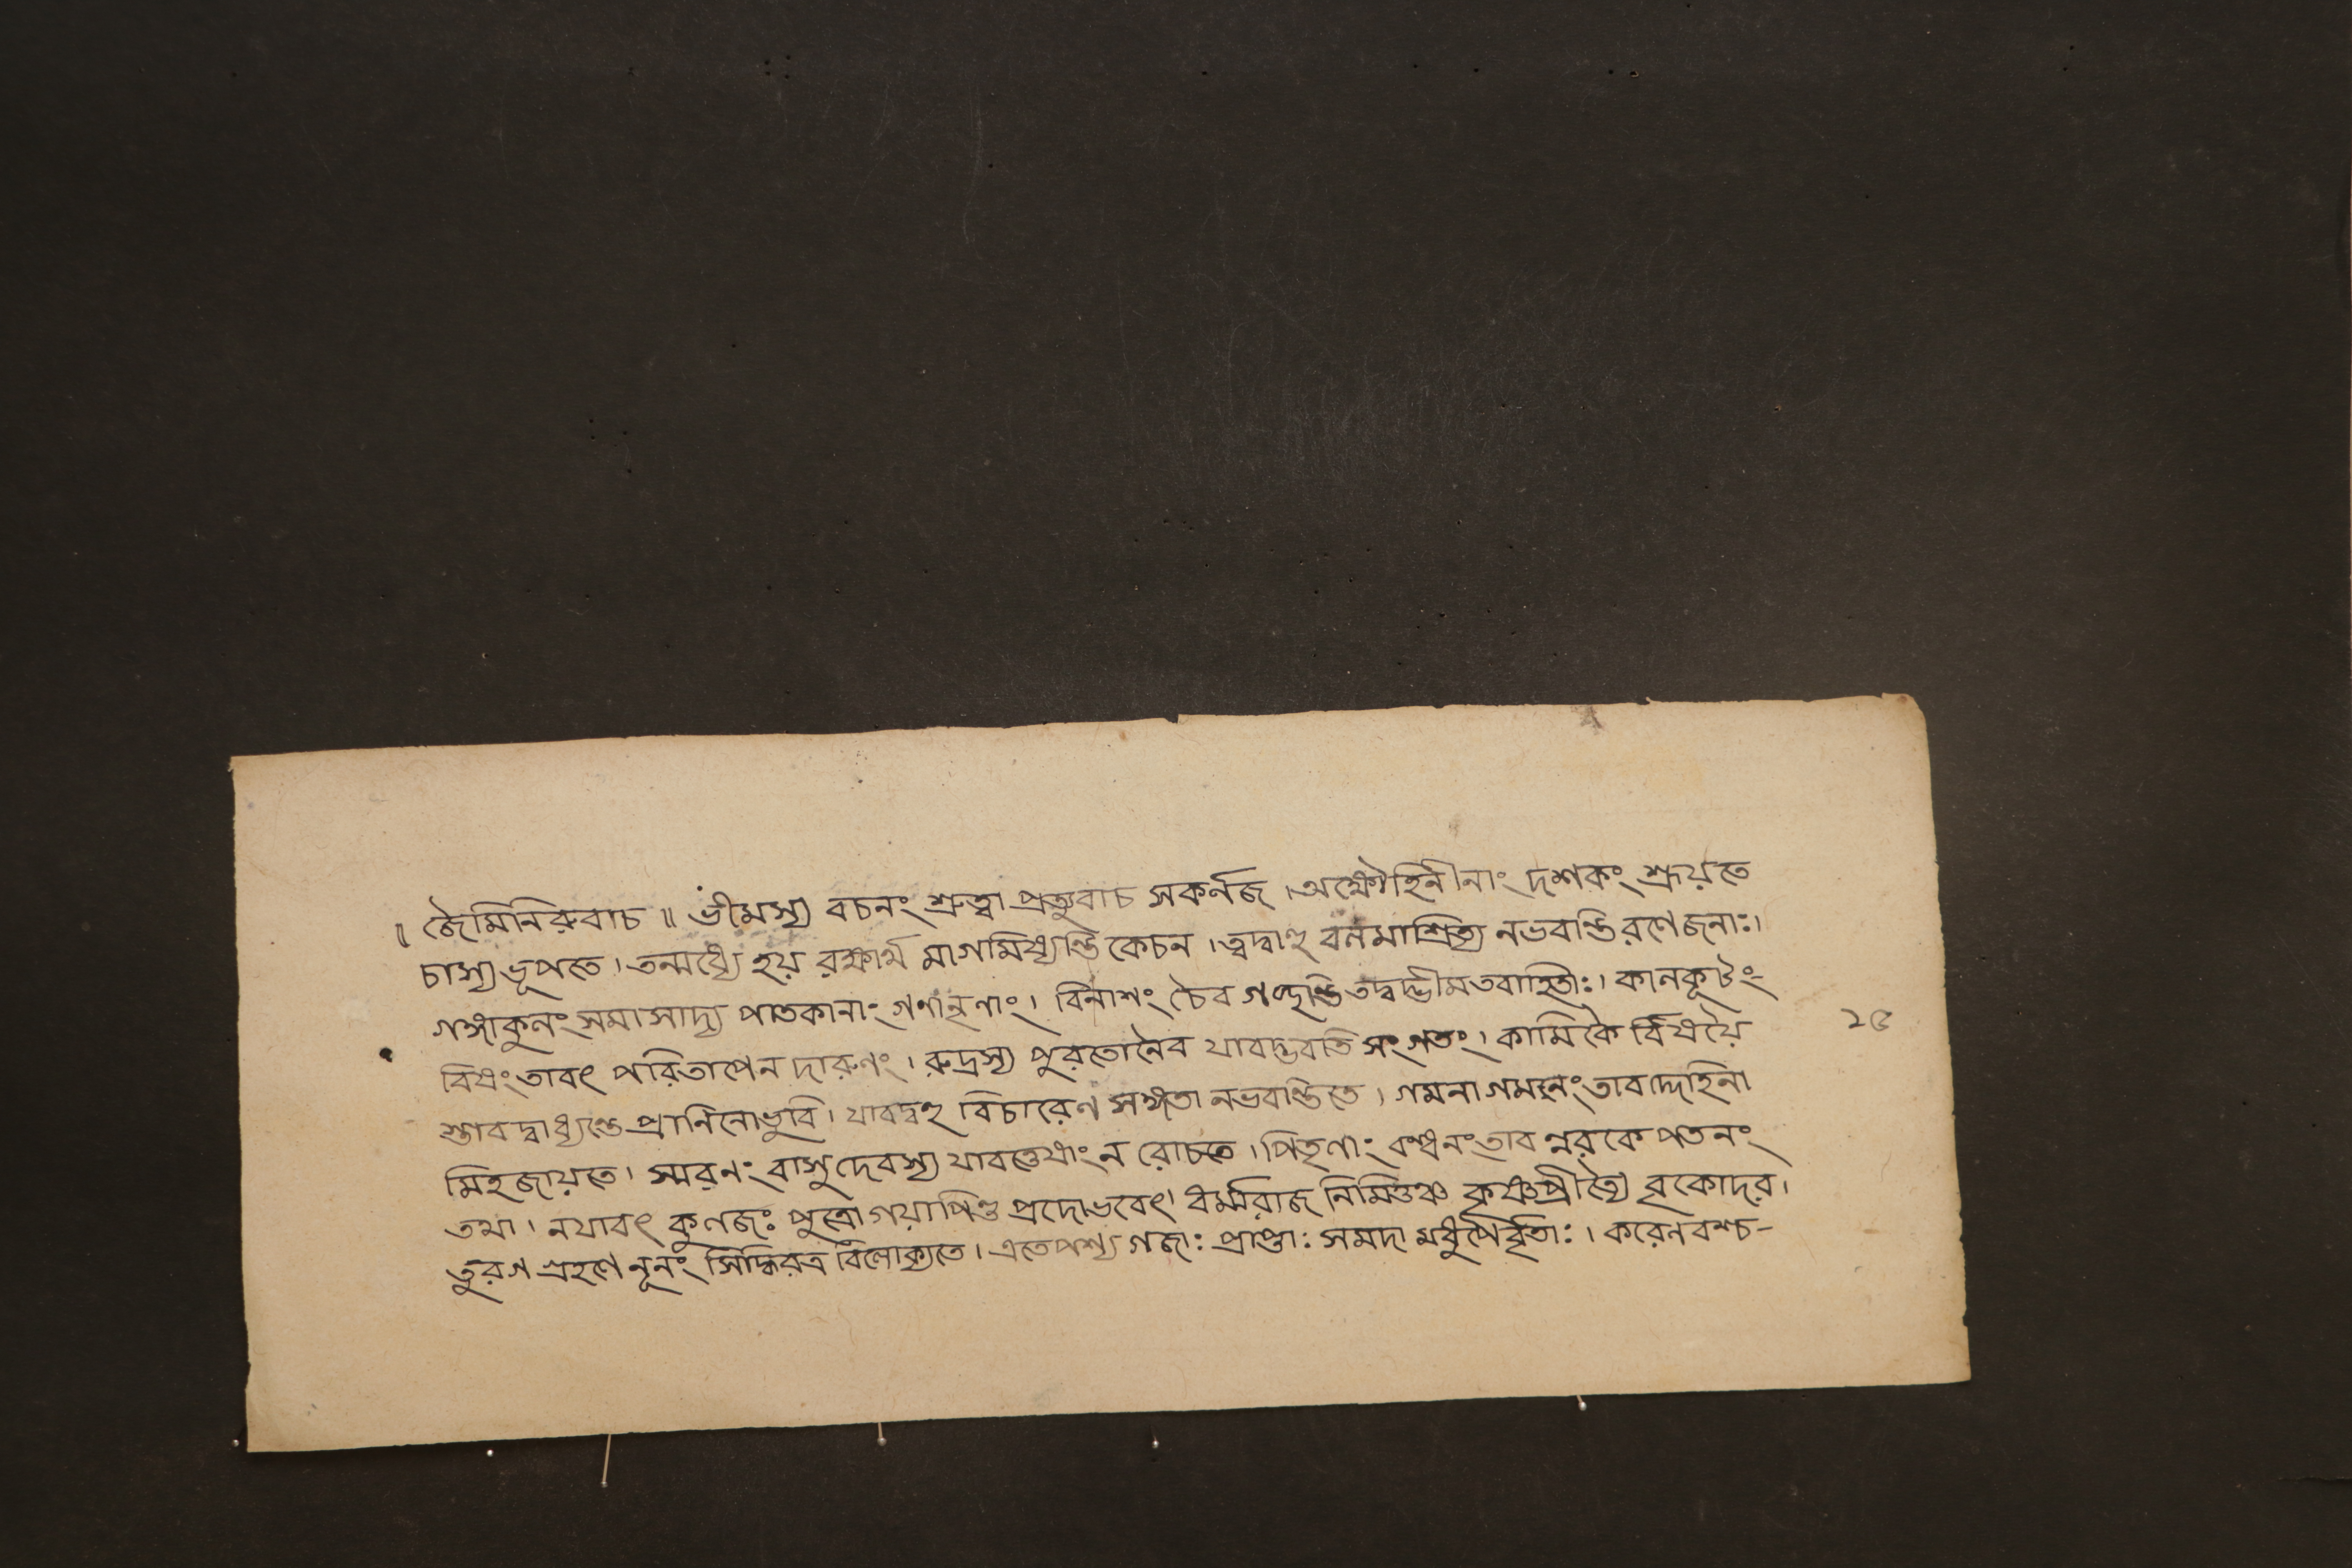 ॥ জৈমিনিরুবাচ ॥ ভীমস্য বচনং শ্রুত্বা প্রত্যুবাচ সকর্নজ । অক্ষৌহিনীনাং দশকং শ্রূয়তে
চাস্য ভূপতে । তন্মধ্যে হয় রক্ষার্থ মাগমিষ্যন্তি কেচন । ত্বদ্বাহু বলমাশ্রিত্য নভবন্তি রণে জনাঃ ।
গঙ্গাকুলং সমাসাদ্য পাতকানাং গণানৃণাং । বিনাশং চৈব গচ্ছন্তি তদ্বদ্ভীমতবাহিতাঃ । কালকূটং-
বিষং তাবৎ পরিতাপেন দারুণং । রুদ্রস্য পুরতোনৈব যাবদ্ভবতি সংগতং । কামিকৈ র্বিষয়ৈ
স্তাবদ্বাধ্যন্তে প্রানিনোভুবি । যাবদ্বহু বিচারেণ সঙ্গতা নভবন্তিতে । গমনাগমনং তাবদ্দেহিনা
মিহজায়তে । স্মরনং বাসুদেবস্য যাবত্তেষাং ন রোচতে । পিতৃণাং বন্ধনং তাব ন্নরকে পতনং
তথা । নযাবৎ কুলজঃ পুত্রো গয়াপিণ্ড প্রদোভবেৎ । ধর্ম্মরাজ নিমিত্তঞ্চ কৃষ্ণপ্রীত্যৈ বৃকোদর ।
তুরগ গ্রহণে নূনং সিদ্ধিরত্র বিলোক্যতে । এতে পশ্য গজাঃ প্রাপ্তাঃ সমদা মধুপৈর্বৃতাঃ । করেণবশ্চ-
২৫